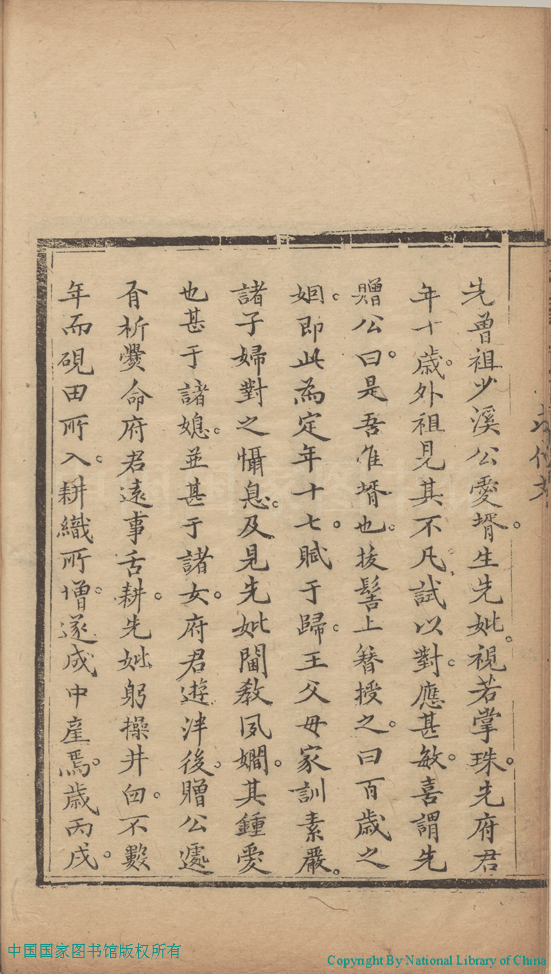 先曾祖少溪公愛壻。生先妣。視若掌珠。先府君
年十歲。外祖見其不凡。試以對。應甚敏。喜謂先
贈公曰。是吾佳壻也。拔髻上簪授之。曰百歲之
姻。即此為定。年十七。賦于歸。王父母家訓素嚴。
諸子婦對之懾息。及見先妣閫教夙嫺。其鍾愛
也甚于諸媳。並甚于諸女。府君遊泮後。贈公遽
有析爨命。府君遠事舌耕。先妣躬操井臼。不數
年而硯田所入。耕織所增。遂成中產焉。歲丙戌。
中国国家图书馆版权所有
Copyright By National Library of China